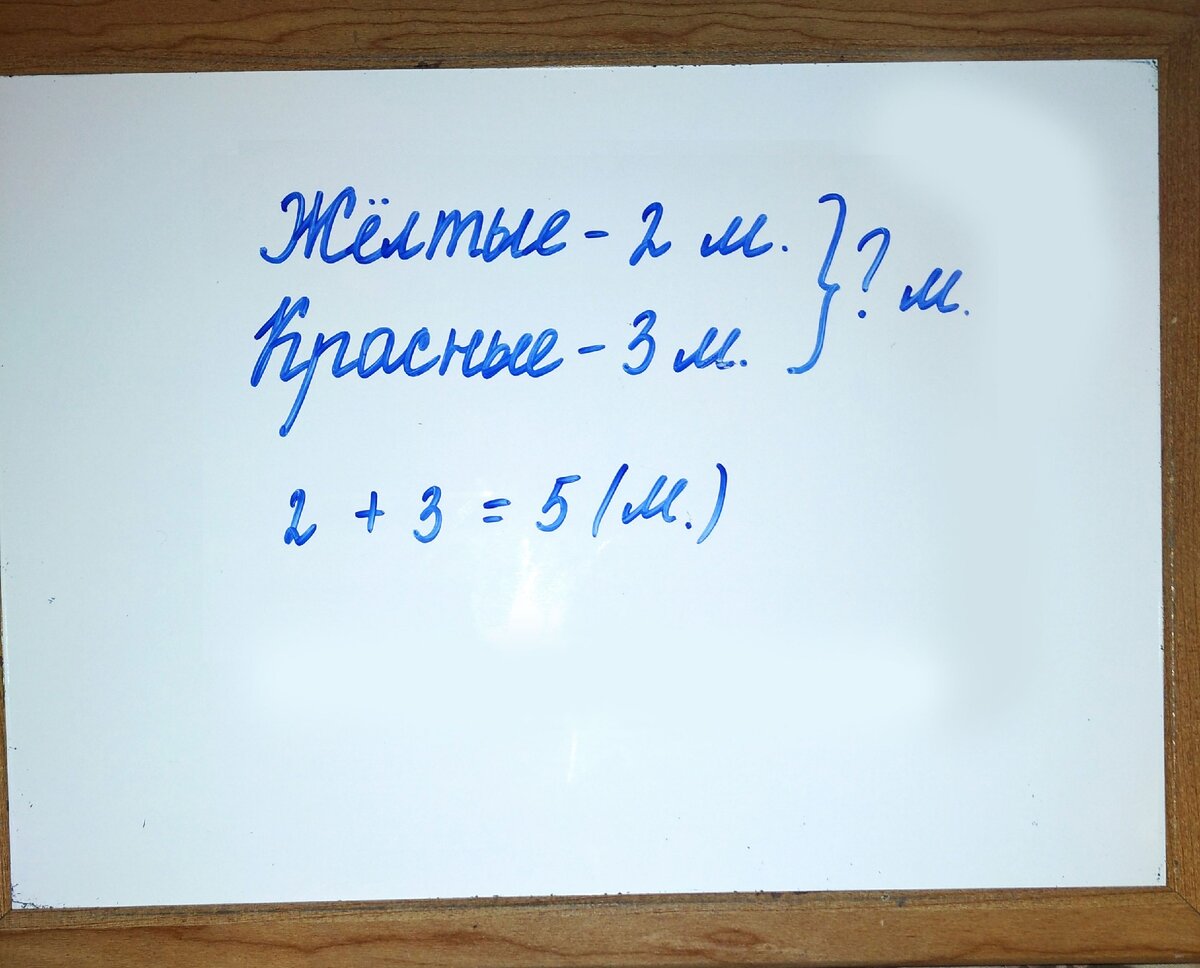 Жёлтые - 2 м. } ? м.
Красные - 3 м.
2 + 3 = 5 (м.)